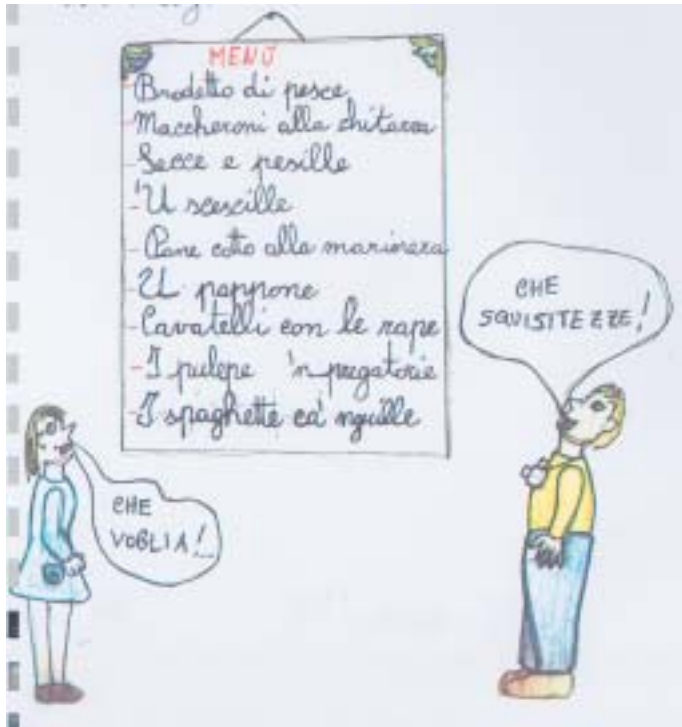 MENÙ
- Brodetto di pesce
- Maccheroni alla chitarra
- Secce e pesille
- 'U scescille
- Pane cotto alla marinara
- U pappone
- Cavatelli con le rape
- I pulepe 'n pregatorie
- I spaghette ca' nguille
CHE
SQUISITEZZE!
CHE
VOGLIA!..